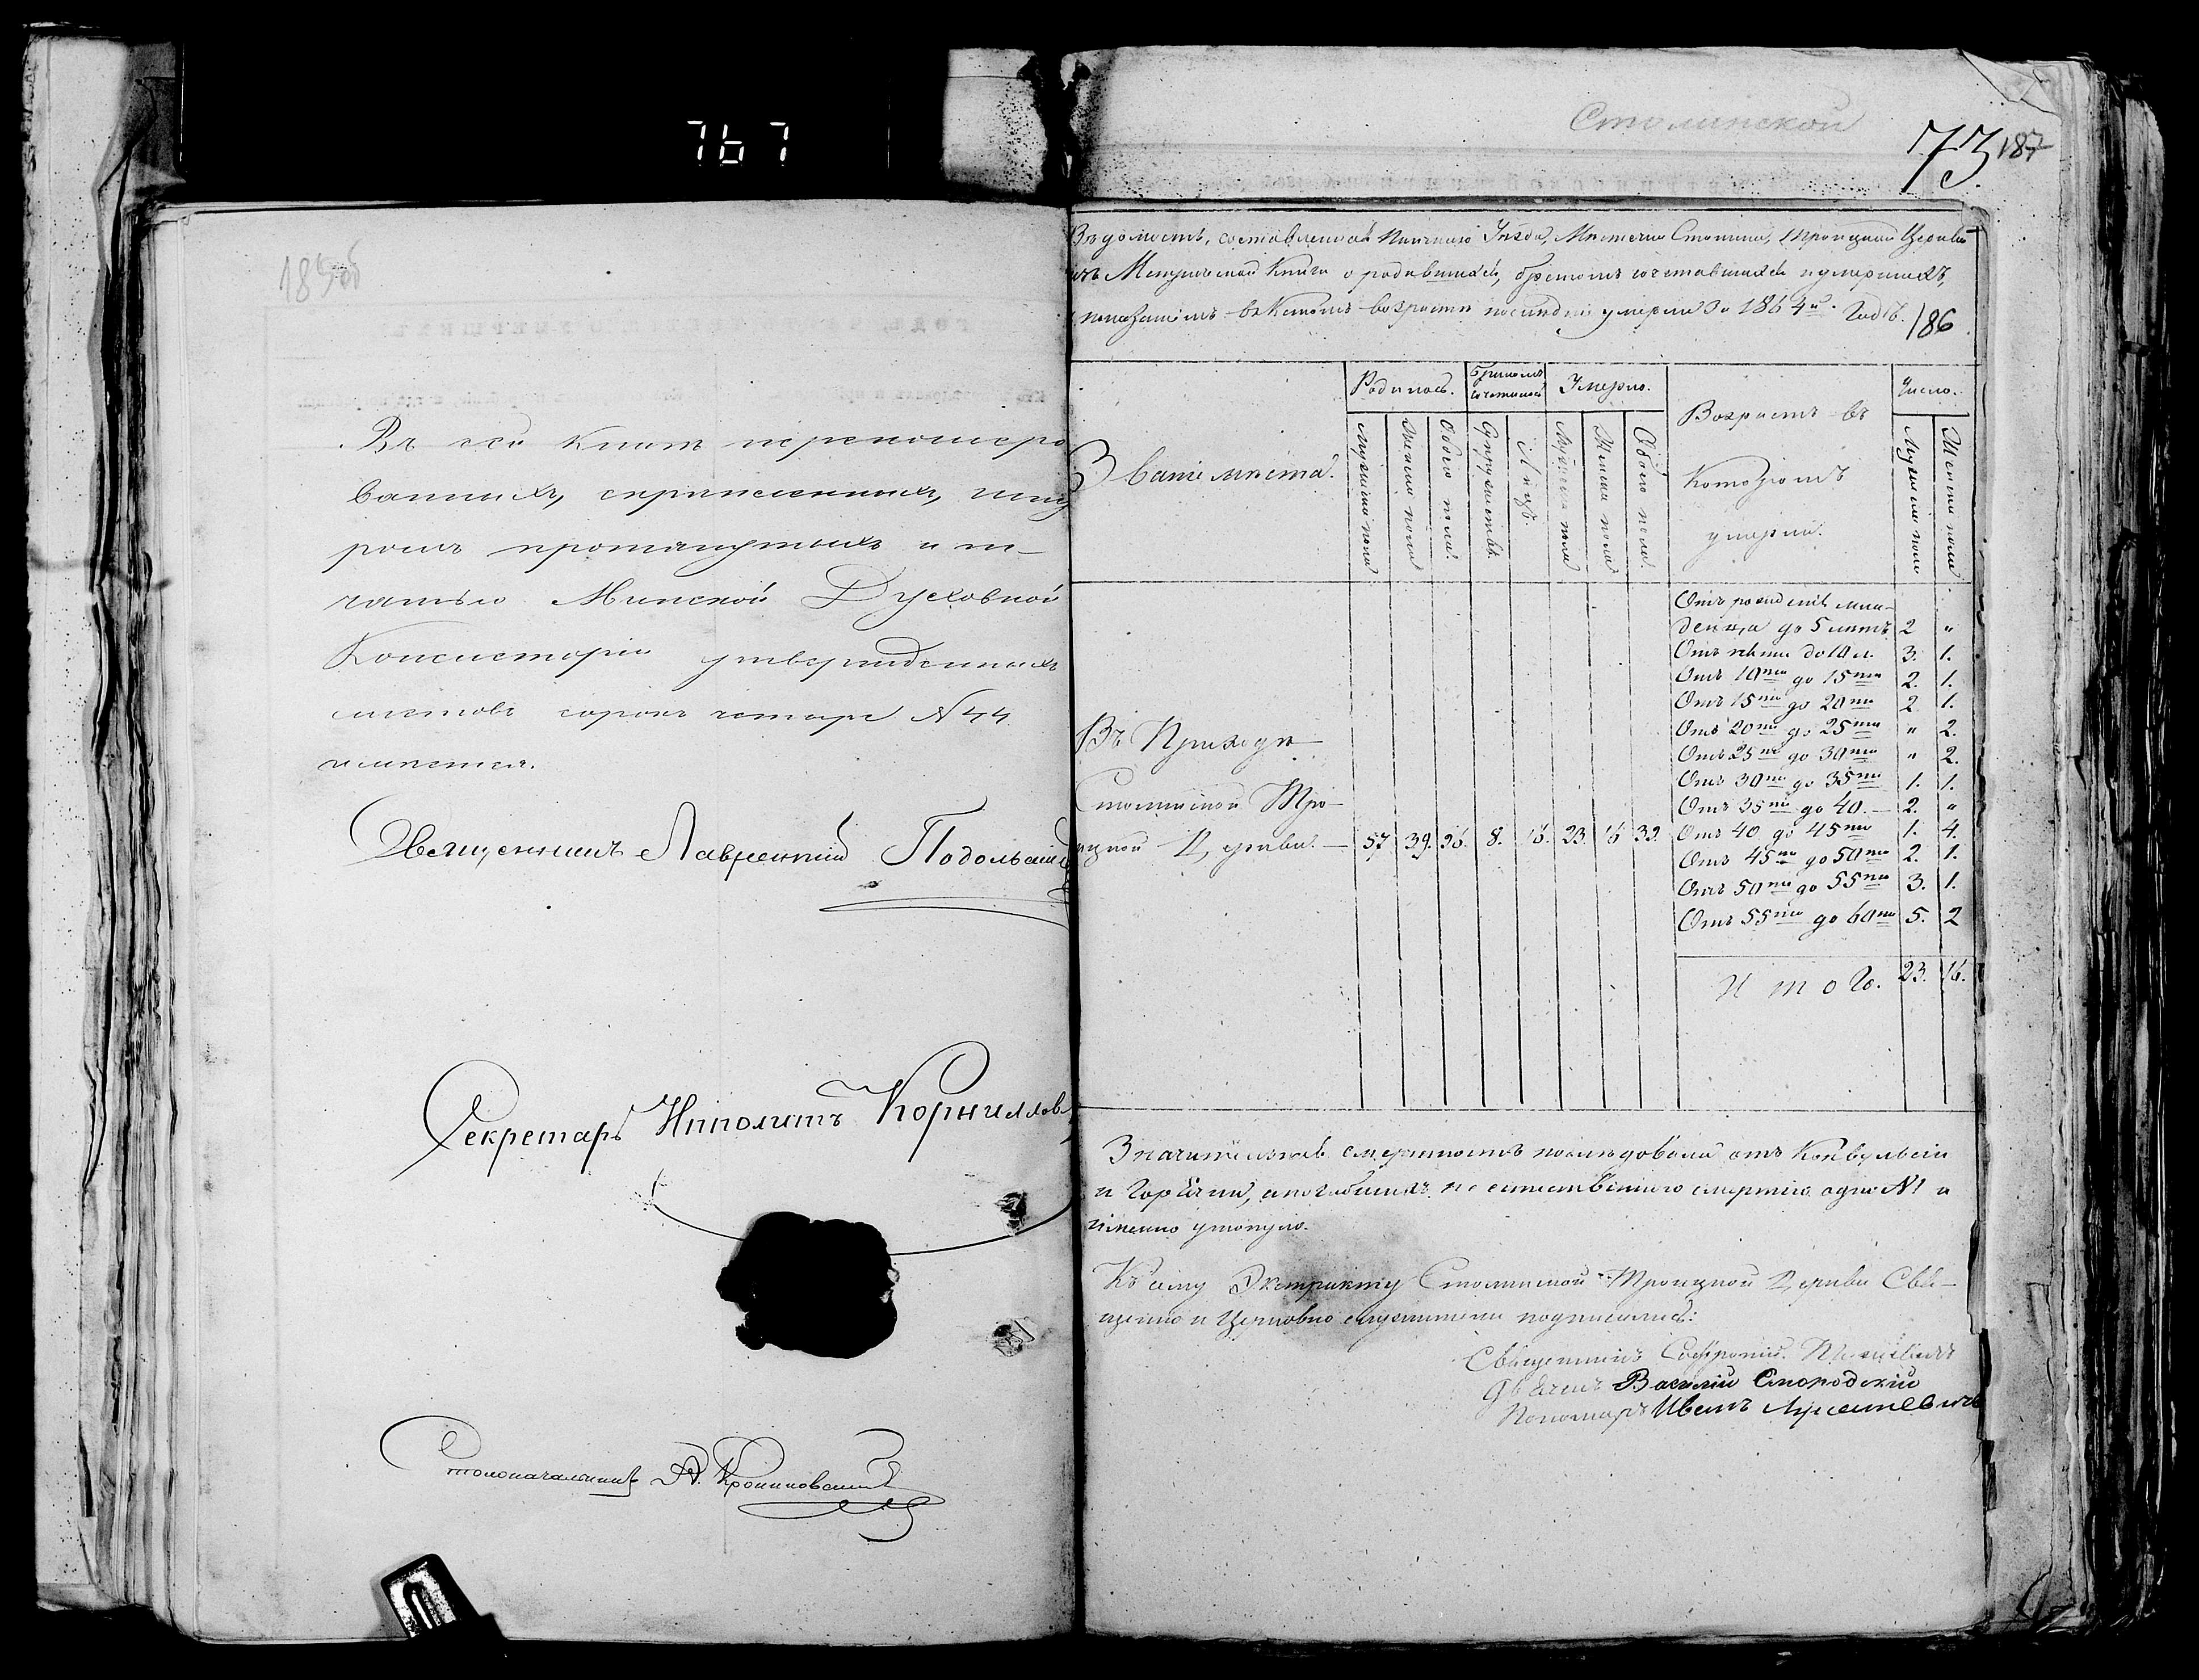 767
185 об
Въ сей книгѣ перенумеро
ванныхъ, скрѣпленныхъ, шну
ромъ протянутыхъ и пе-
чатью Минской Духовной
Консисторіи утвержденныхъ
листовъ сорокъ четыре N 44
имѣется.
Священникъ Лаврентій
Секретарь Ипполитъ Корниллов
Столоначальникъ А.
Столинской
73. 187
Вѣдомость, составленная Пинскаго Уѣзда, Мѣстечка Столина, Троицкой Церкви
изъ Метрической Книги о родившихся, бракомъ сочетавшихся и умершихъ,
съ показаніемъ въ какомъ возрастѣ послѣдніе умерли за 1864й. Годъ. 186
Званіе мѣста.
Родилось.
Бракомъ сочеталось
Умерло.
Возрастъ въ
которомъ
умерли.
Число.
Мужеска пола
Женска пола
Обоего пола.
Супружествъ.
Лицъ.
Мужеска пола
Женска пола
Обоего пола.
Мужеска пола
Женска пола
Въ Приходѣ
Столинской Тро-
ицкой Церкви. — 57 39. 96. 8. 16. 23. 16 39.
Отъ рожденія мла-
денца до 5 лѣтъ 2 "
Отъ пяти до 10 л. 3. 1.
Отъ 10ти до 15ти 2. 1.
Отъ 15ти до 20ти 2. 1.
Отъ 20ти до 25ти " 2.
Отъ 25ти до 30ти " 2.
Отъ 30ти до 35ти 1. 1.
Отъ 35ти до 40. — 2. "
Отъ 40 до 45ти 1. 4.
Отъ 45ти до 50ти 2. 1.
Отъ 50ти до 55ти 3. 1.
Отъ 55ти до 60ти 5. 2
Итого. 23. 16.
Значительная смертность послѣдовала отъ Конвульсіи
и Горячки, а погибшихъ не естественною смертію одно N1 и
именно утонуло.
Къ сему Экстракту Столинской Троицкой Церкви Свя-
щенно и Церковно служители подписались:
Священникъ Софроній
Дьячекъ Василій Смородскій
Пономарь Иванъ